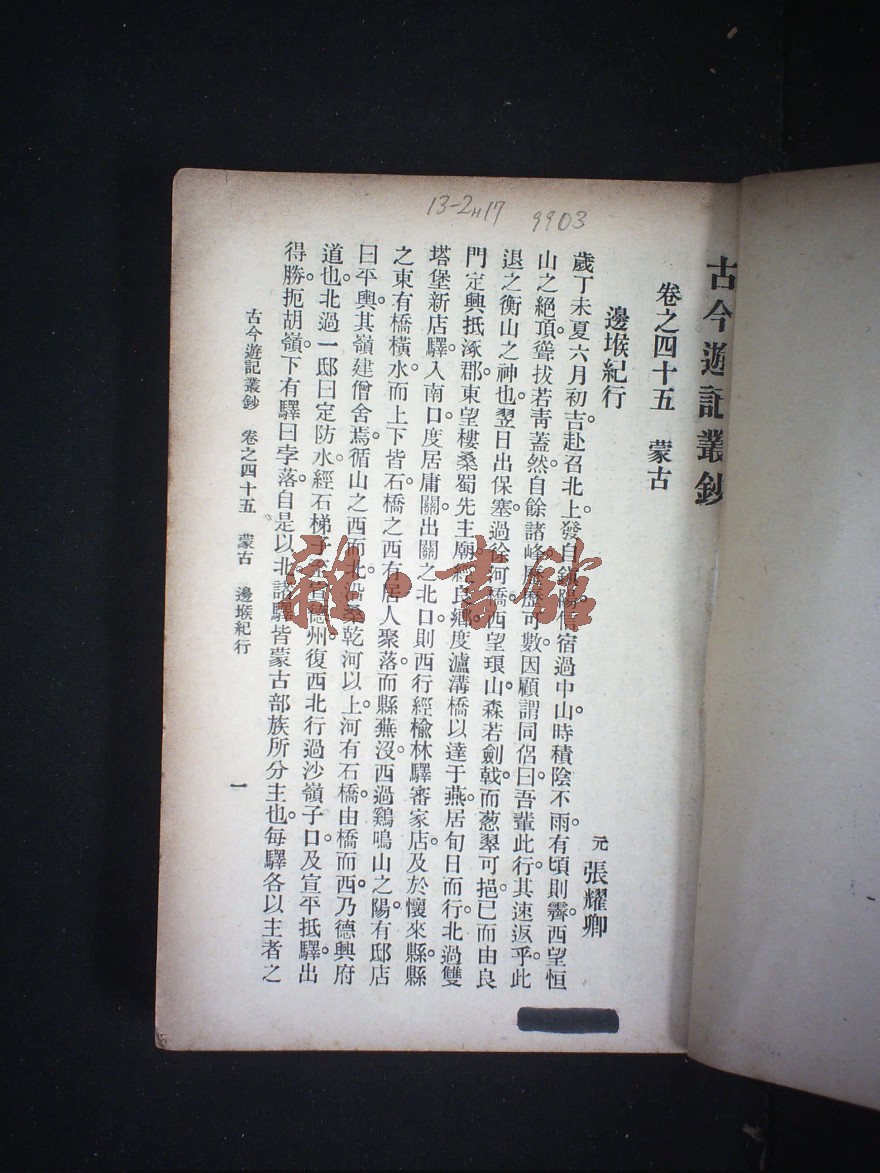 13-2H17 9903
古今遊記叢鈔
卷之四十五 蒙古
邊堠紀行
元 張耀卿
歲丁未夏六月初吉。赴召北上。發自鎮陽。信宿過中山。時積陰不雨。有頃則霽。西望恒
山之絕頂。聳拔若青蓋然。自餘諸峰。歷歷可數。因顧謂同侶曰。吾輩此行其速返乎。此
退之衡山之神也。翌日出保塞。過徐河橋。西望琅山。森若劍戟。而葱翠可挹。已而由良
門定興抵涿郡。東望樓桑蜀先主廟。經良鄉。度瀘溝橋以達于燕。居旬日而行。北過雙
塔堡新店驛。入南口。度居庸關。出關之北口。則西行經榆林驛審家店。及於懷來縣。縣
之東有橋橫水。而上下皆石。橋之西有居人聚落。而縣蕪沒。西過鷄鳴山之陽。有邸店
曰平輿。其嶺建僧舍焉。循山之西而北。沿桑乾河以上。河有石橋。由橋而西。乃德興府
道也。北過一邸曰定防。水經石梯子。至宣德州。復西北行過沙嶺子口。及宣平抵驛。出
得勝。扼胡嶺。下有驛曰孛落。自是以北。諸驛皆蒙古部族所分主也。每驛各以主者之
古今遊記叢鈔 卷之四十五 蒙古 邊堠紀行 一
雜·書館